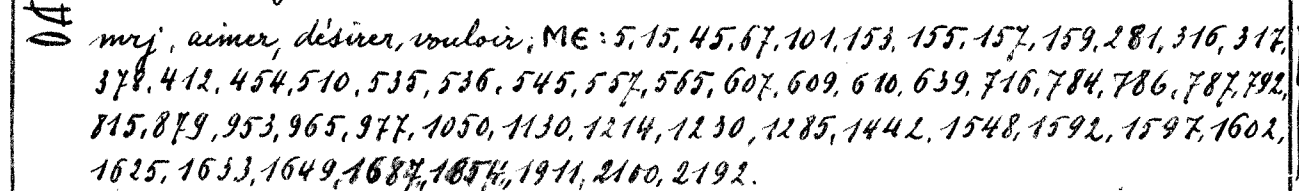 mrj, aimer, désirer, vouloir; ME : 5, 15, 45, 67, 101, 153, 155, 157, 159, 281, 316, 317,
378, 412, 454, 510, 535, 536, 545, 557, 565, 607, 609, 610, 639, 716, 784, 786, 787, 792,
815, 879, 953, 965, 977, 1050, 1130, 1214, 1230, 1285, 1442, 1548, 1592, 1597, 1602,
1625, 1633, 1649, 1687, 1854, 1911, 2100, 2192.